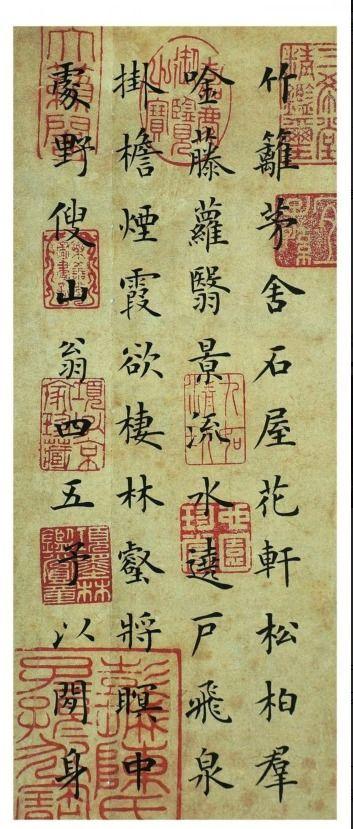 竹籬茅舍石屋花軒松柏羣
唫藤蘿翳景流水遶戶飛泉
掛檐煙霞欲棲林壑將暝中
處野傁山翁四五予以閒身